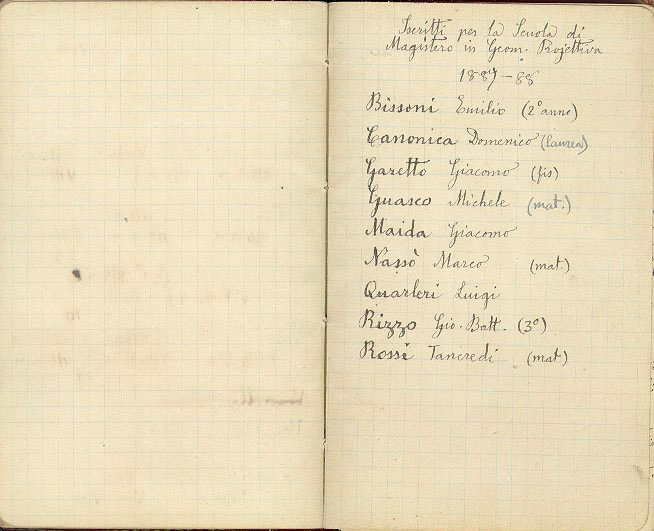 Iscritti per la Scuola di
Magistero in Geom. Projettiva
1887-88
Bissoni Emilio (2° anno)
Canonica Domenico (laurea)
Garetto Giacomo (fis)
Guasco Michele (mat.)
Maida Giacomo
Nassò Marco (mat.)
Quarleri Luigi
Rizzo Gio. Batt. (3°)
Rossi Tancredi (mat)